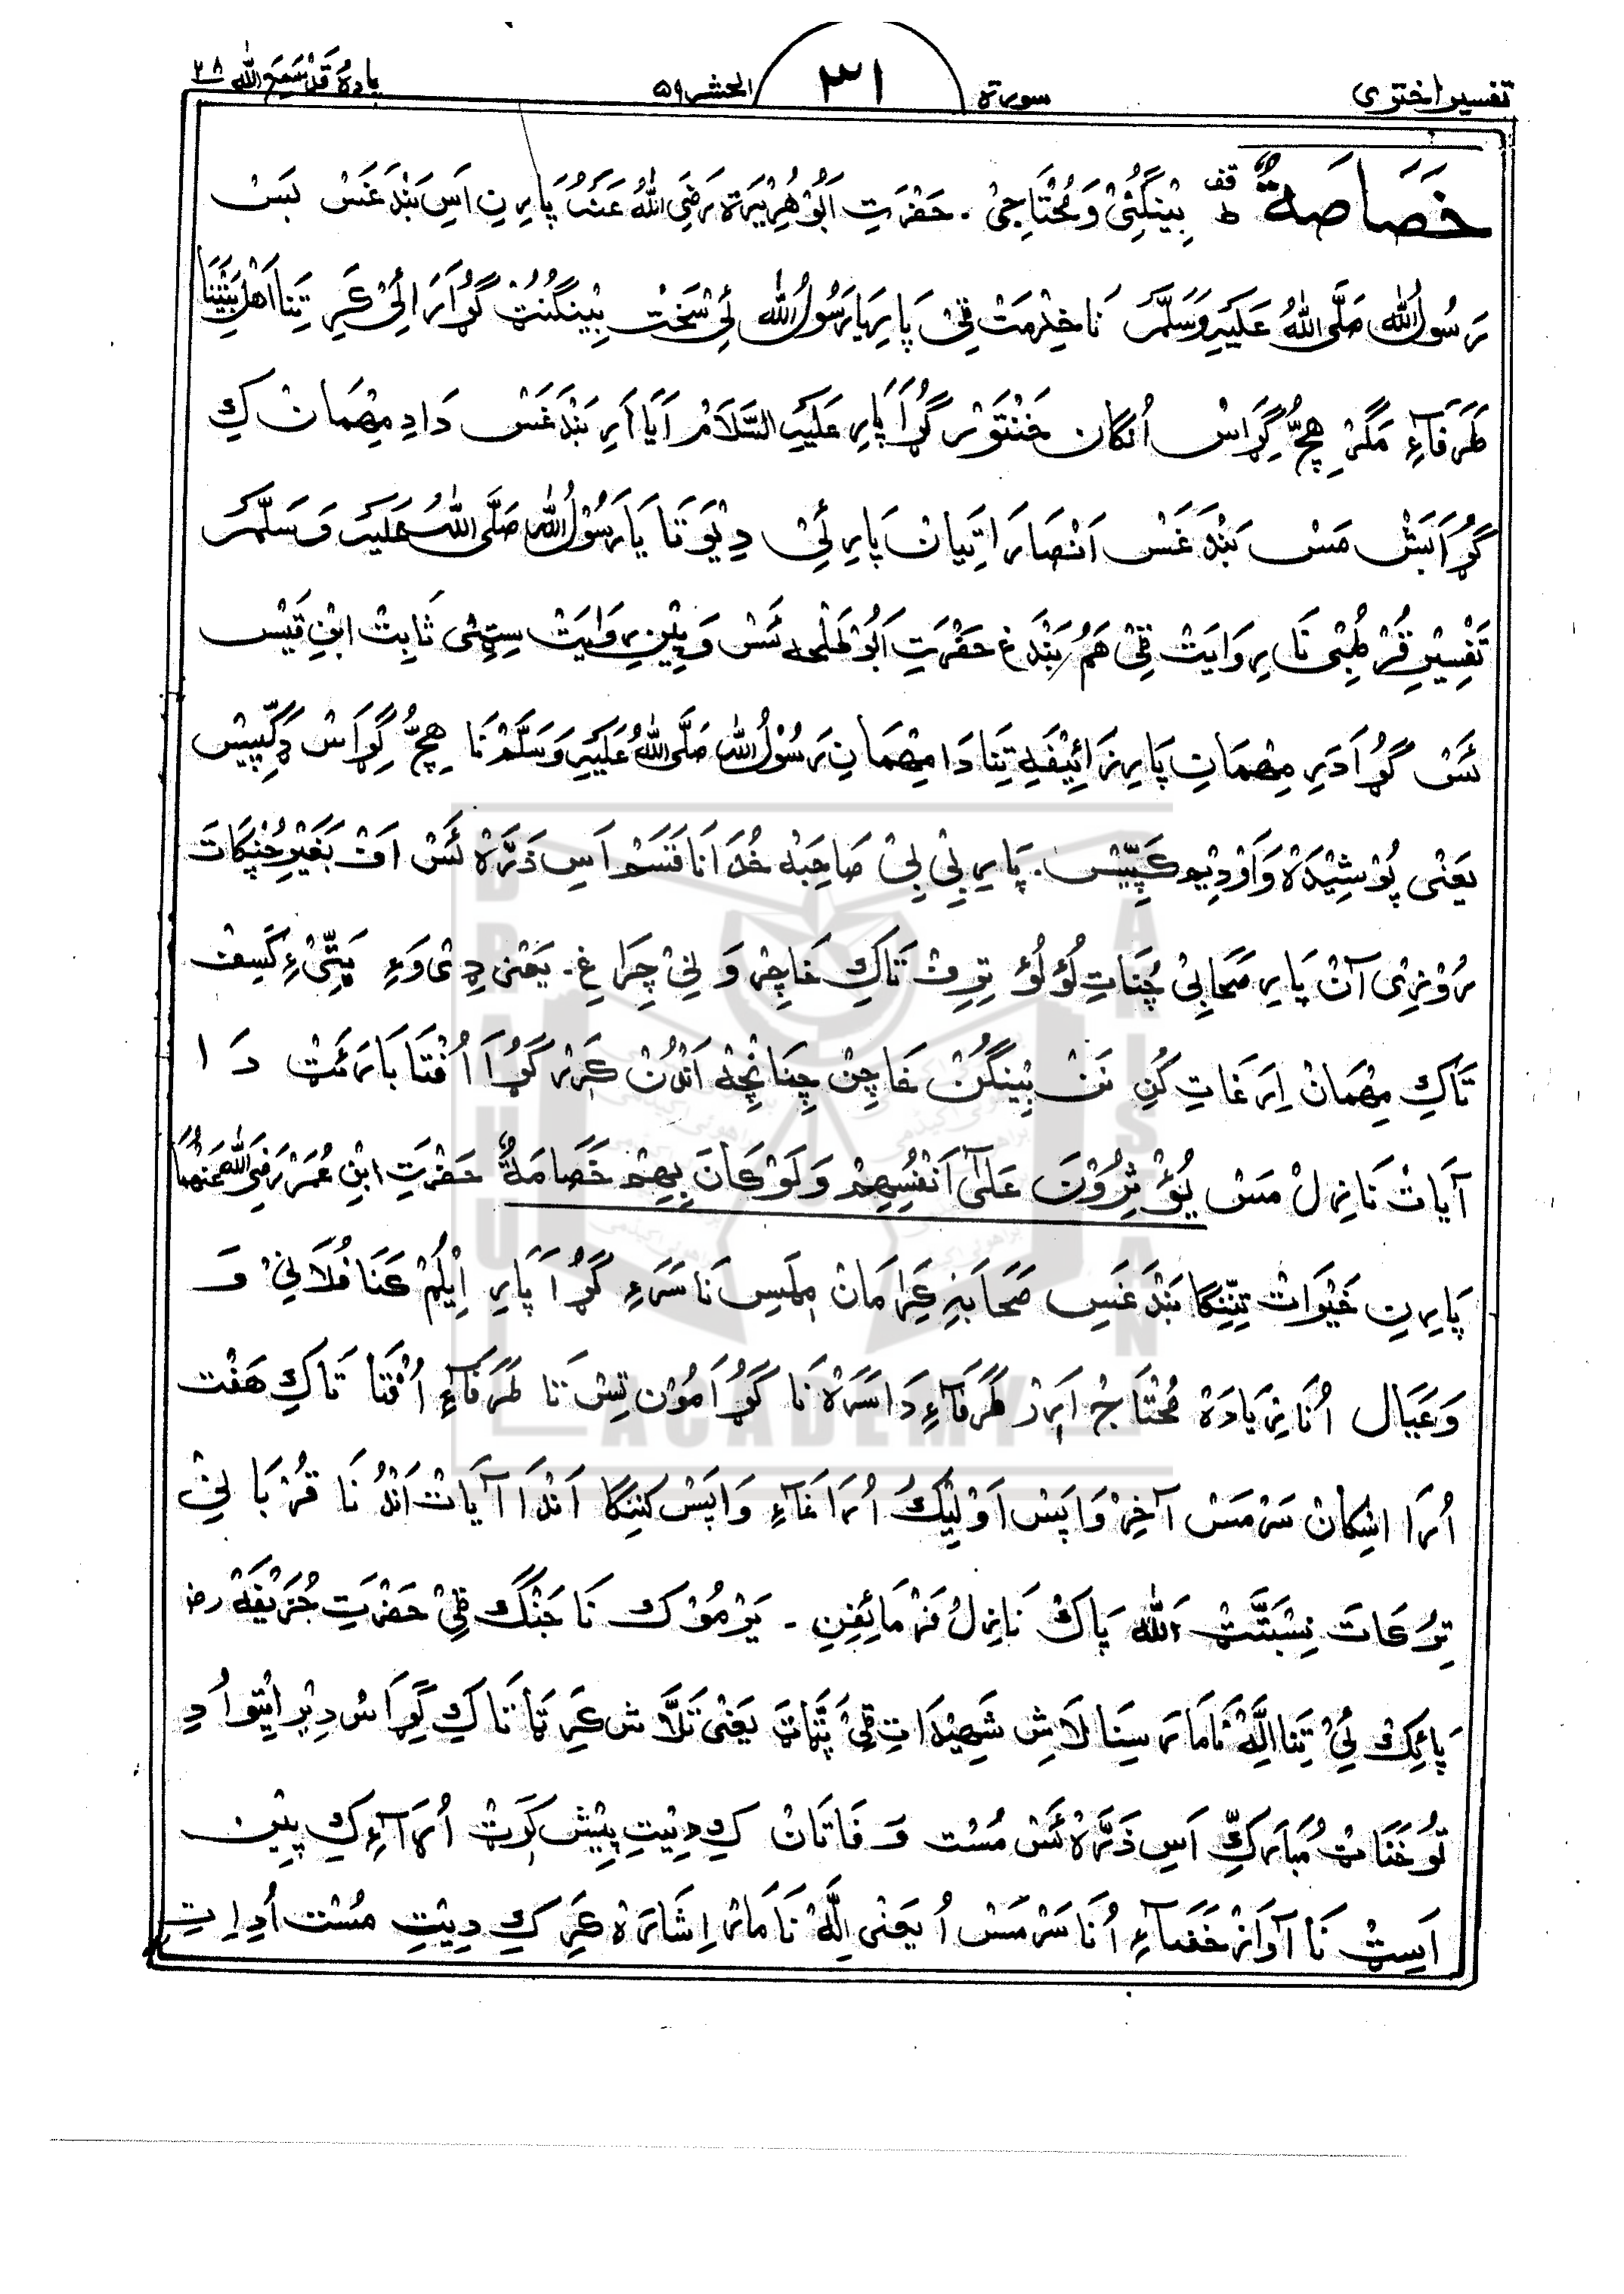 تفسیر اختری سورة ٣١ الحشر ٥٩ پاره قَدْ سَمِعَ اللّٰه ٢٨
خَصَاصَةٌ ؕ قف بِیْنگِئی وَ مُحْتَاجِیْ ۔ حَضْرَتِ اَبُوْ هُرَیْرَة رَضِیَ اللّٰهُ عَنْهُ پَارِن اَسِ بَنْدَغَسْ بَسْ
رَسُولُ اللّٰهِ صَلَّی اللّٰهُ عَلَیْهِ وَسَلَّمَ نَا خِدْمَتْ قِیْ پَارِ یَا رَسُولَ اللّٰه لِیْ سَخْت بِیْنگُنُٹ گُڑَا رَالِیْ کَرِ تِنَا اَهْلِ بَیْتِنَا
طَرَفَآءِ مَگَرْ هِچُّ گِڑَاسْ اُنگان خَنْتَوْر گُڑَا پَارِ عَلَیْهِ السَّلَامْ اَیَا اَرِ بَنْدَغَسْ دَادِ مِهْمَان کِ
گُڑَا بَشْ مَسْ بَنْدَغَسْ اَنْصَارَاتِیَان پَارِ لِیْ دِیْوَتَا یَا رَسُوْلَ اللّٰهِ صَلَّی اللّٰهُ عَلَیْهِ وَسَلَّمَ
تَفْسِیْرِ قُرْطُبْی نَا رِوَایَتْ قِیْ هَمُ بَنْدَغ حَضْرَتِ اَبُوْ طَلْحه ئَسْ وَ پِلْنِ رِوَایَتْ سِٹِٹی ثَابِتْ ابْنِ قَیْس
ئَسْ گُڑَا دَرِ مِهْمَانِ پَارِ زَائِیْفَه تِنَا دَا مِهْمَانِ رَسُوْلُ اللّٰهِ صَلَّی اللّٰهُ عَلَیْهِ وَسَلَّمْ نَا هِچُّ گِڑَاسْ ڈَکِّپِیْس
یَعْنی پُوْشِیْدَهْ وَ اَوْدِیْم کَپِّیْس ۔ پَارِ بِیْ بِیْ صَاحِبَهْ خُدَانَا قَسَمْ اَسِ ذَرَّهْ ئَسْ اَفْ بَغَیْرِ چُنْکَاتَ
رُوْزِی آنْ پَارِ صَحَابِیْ چُنَاتِ لُوْلُوْ تِرِث تَاکِ خَاچِرْ وَ نِیْ چِرَاغِ ۔ یَعْنی ڈِیْوَءِ بَتِّیْءِ کَسِفْ
تَاکِ مِهْمَانْ اِرَغَاتِ کُنِ نَنْ بِیْنگُنْ خَاچِنْ چِنَانْچِهْ اَنْدُنْ کَرِرْ گُڑَا اُفْتَا بَارَئَٹ دَا
آیَاتْ نَازِلْ مَسْ یُؤْثِرُوْنَ عَلٰٓی اَنْفُسِهِمْ وَلَوْ کَانَ بِهِمْ خَصَاصَةٌ حَضْرَتِ ابْنِ عُمَرْ رَضِیَ اللّٰهُ عَنْهُمَا
پَارِنِ خَیْرَاتْ تِنِّنگَا بَنْدَغَسِ صَحَابَہِ کِرَامَانْ مِلَسِ نَا سَرَءِ گُڑَا پَارِ اِیْلُمْ کَنَا فُلَانِیْ وَ
وَعَیَال اُنَا زِیَادَهْ مُحْتَاجْ اَرِرْ طَرَفَآءِ دَا سَرَهْ نَا گُڑَا مُوْن تِسْ تَا طَرَفَآءِ اُفْتَا تَاکِ هَفْت
اُرَا اِسْکَانْ سَرْمَسْ آخِرْ وَاپَسْ اَوْلِیْکُ اُرَاغَآءِ وَاپَسْ کَنِنگَا اَنْدَا آیَاتْ اَنْدُنَا قُرْبَانِیْ
تِرُکَاتَ نِسْبَتَٹْ اَللّٰه پَاکْ نَازِلْ فَرْمَائِفِنِ ۔ یَرْمُوْک نَا جَنْگ قِیْ حَضْرَتِ حُذَیْفَهْ رض
پَائِکْ لِیْ تِنَا اِلَّهْ نَا مَارَسِنَا لَاشِ شَهِیْدَاتِ قِیْ پَٹَّاٹَ یَعْنی تَلَّاش کَرِٹَا تَاکِ گِڑَاسْ دِیْرِ اِیْتِو اُدِ
تُو خَنَاٹ مُبَارَکِّ اَسِ ذَرَّهْ ئَسْ مُسْت وَفَاتَانْ کِ دِیْتِ پِیْش کَرِٹ اُرَآءِ کِ پِیْن
اَسِٹ نَا آوَازْ خَفَآءِ اُنَا سَرْمَسْ اُ یَعْنی اِلَّهْ نَا مَارْ اِشَارَهْ کَرِ کِ دِیْتِ مُسْت اُدِ اِتِ
BRAHUI
ACADEMY
PAKISTAN